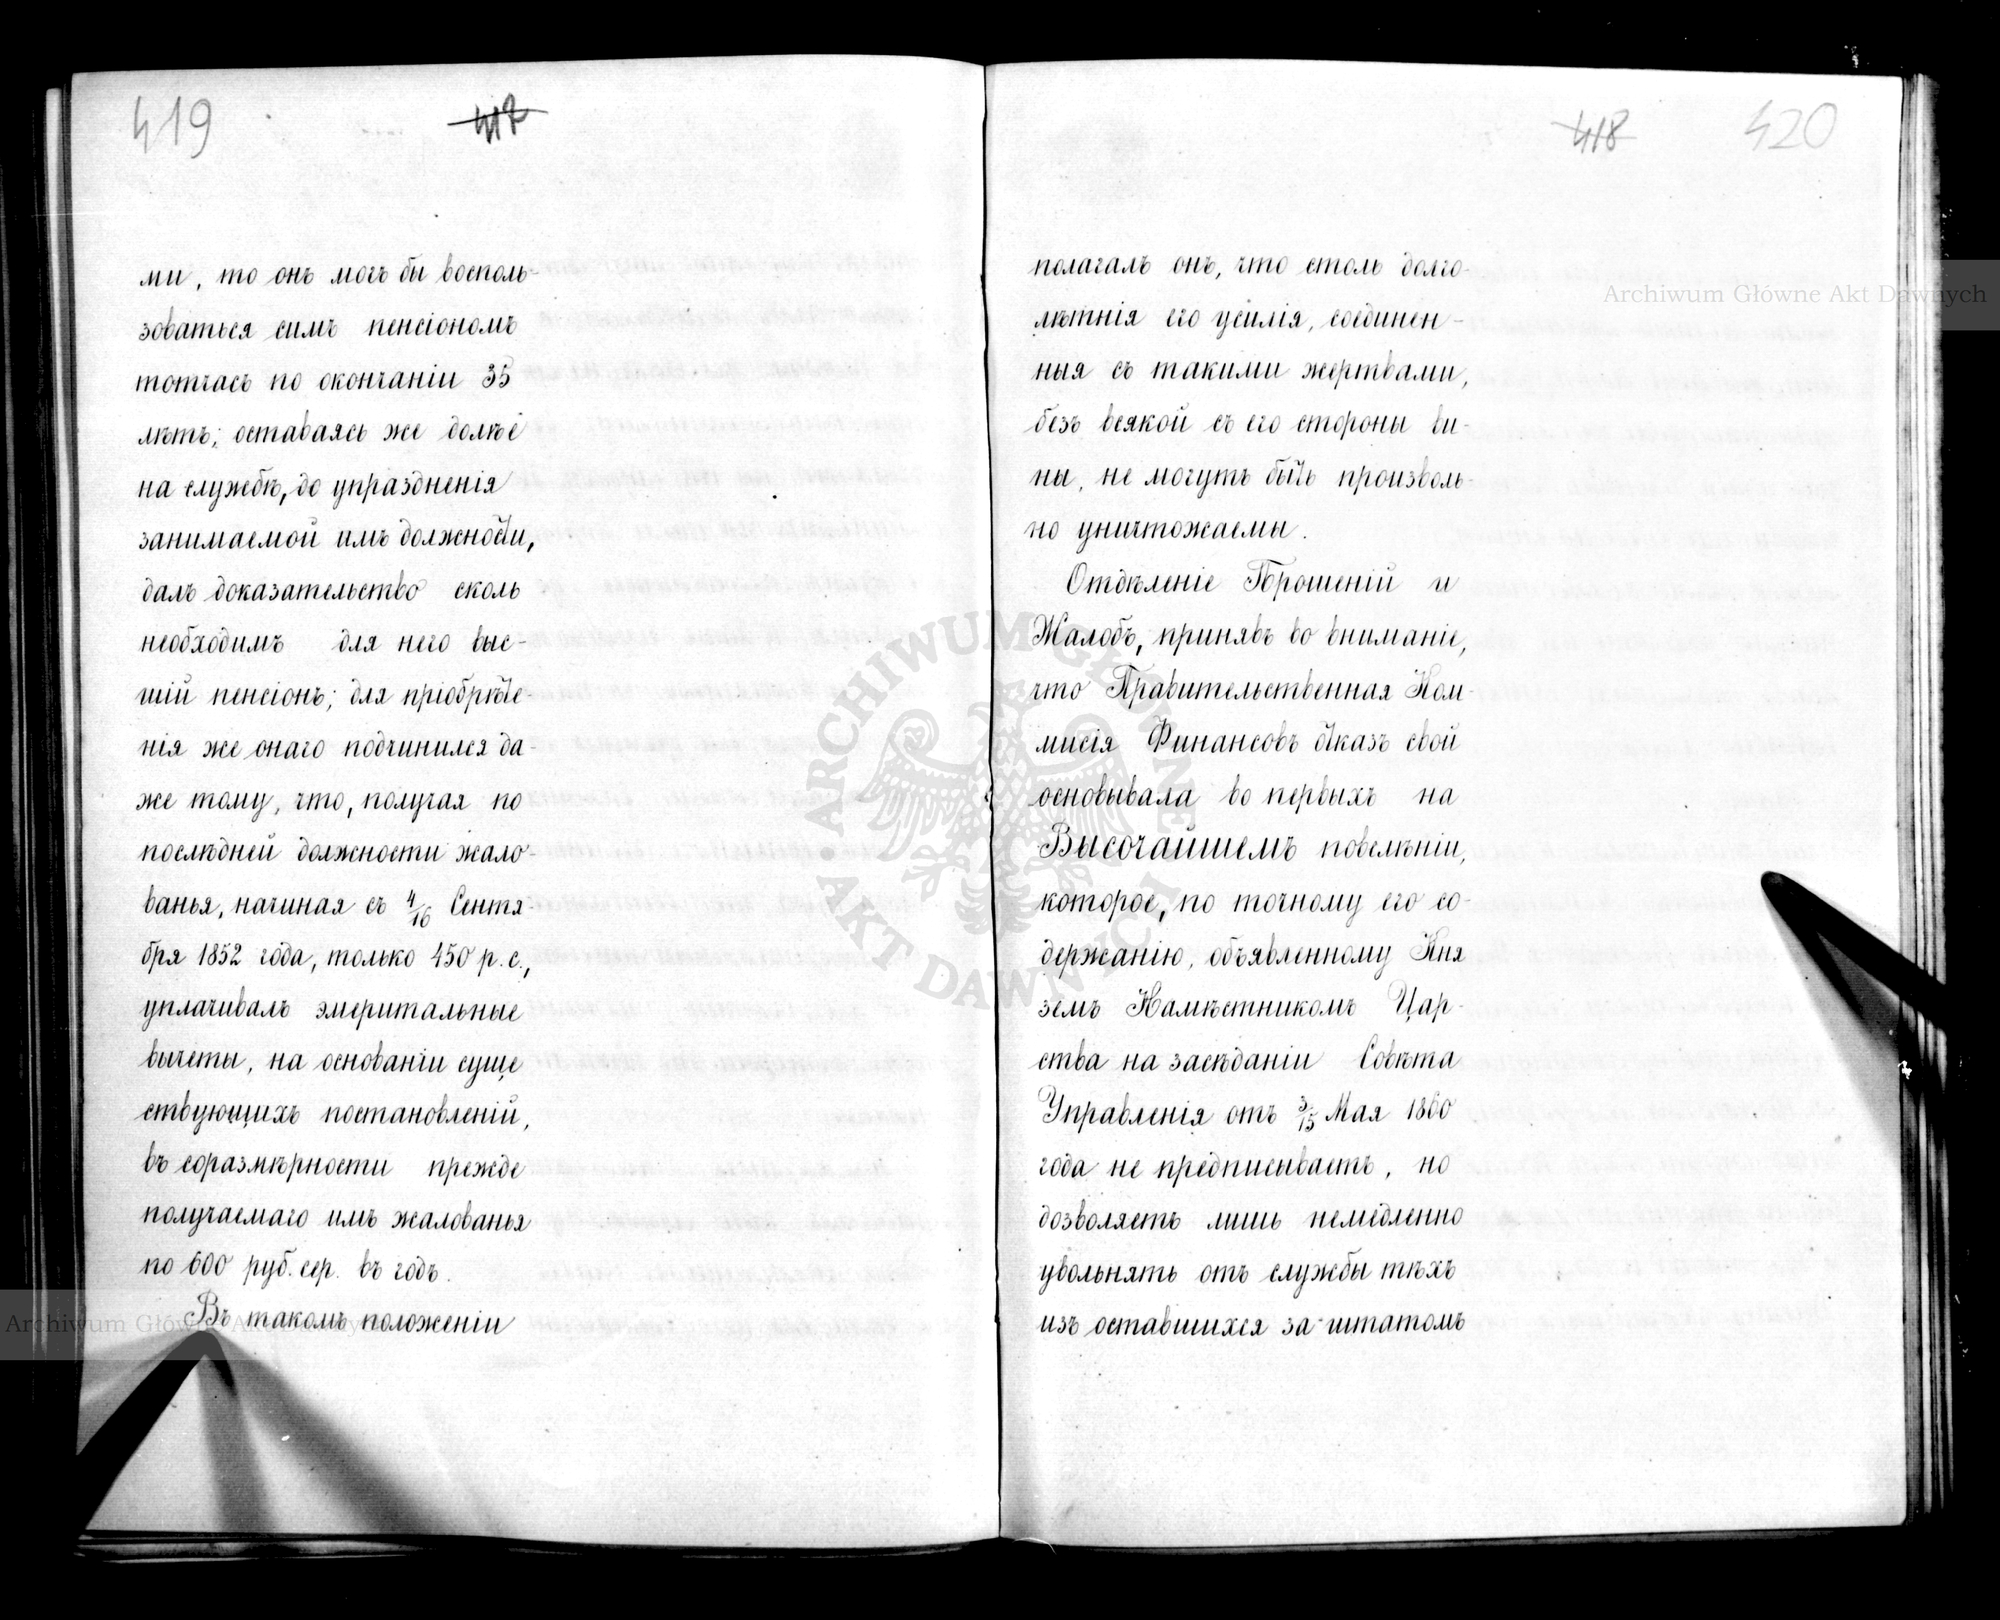 419
417
ми, то онъ могъ бы восполь-
зоваться симъ пенсіономъ
тотчасъ по окончаніи 35
лѣтъ; оставаясь же долѣе
на службѣ, до упраздненія
занимаемой имъ должности,
далъ доказательство сколь
необходимъ для него выс-
шій пенсіонъ; для пріобрѣте-
нія же онаго подчинился да-
же тому, что, получая по
послѣдней должности жало-
ванья, начиная съ 4/16 Сентя-
бря 1852 года, только 450 р. с.,
уплачивалъ эмеритальные
вычеты, на основаніи суще
ствующихъ постановленій,
въ соразмѣрности прежде
получаемаго имъ жалованья
по 600 руб. сер. въ годъ.
Въ такомъ положеніи
418
420
полагалъ онъ, что столь долго-
лѣтнія его усилія, соединен-
ныя съ такими жертвами,
безъ всякой съ его стороны ви-
ны, не могутъ быть произволь-
но уничтожаемы.
Отдѣленіе Прошеній и
Жалобъ, принявъ во вниманіе,
что Правительственная Ком-
мисія Финансовъ отказъ свой
основывала во первыхъ на
Высочайшемъ повелѣніи,
которое, по точному его со-
держанію, объявленному Кня
земъ Намѣстникомъ Цар-
ства на засѣданіи Совѣта
Управленія отъ 3/15 Мая 1860
года не предписываетъ, но
дозволяетъ лишь немедленно
увольнять отъ службы тѣхъ
изъ оставшихся за-штатомъ
Archiwum Główne Akt Dawnych
ARCHIWUM GŁÓWNE AKT DAWNYCH
Archiwum Główne Akt Dawnych